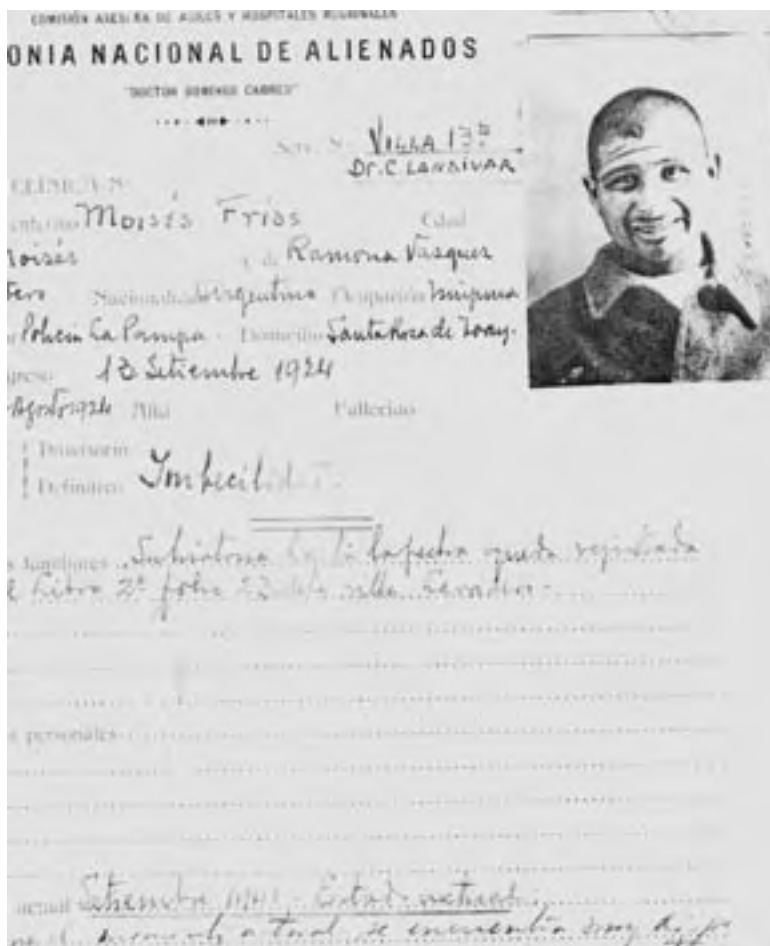 COMISIÓN ASESORA DE ASILOS Y HOSPITALES REGIONALES
ONIA NACIONAL DE ALIENADOS
"DOCTOR DOMINGO CABRED"
Serv. Nº VILLA 13ª
Dr. C LANDÍVAR
CLÍNICA Nº
Moisés Frías Edad
Moisés y de Ramona Vasquez
tero Nacionalidad Argentino Ocupación
Policía La Pampa - Domicilio Santa Rosa de Toay.
greso 13 Setiembre 1924
Agosto 1924 Alta Fallecido
Provisorio
Definitivo Imbecilidad
s familiares Su historia la fecha queda registrada
el Libro 2º folio
s personales
actual Setiembre Estado actual
actual se encuentra muy